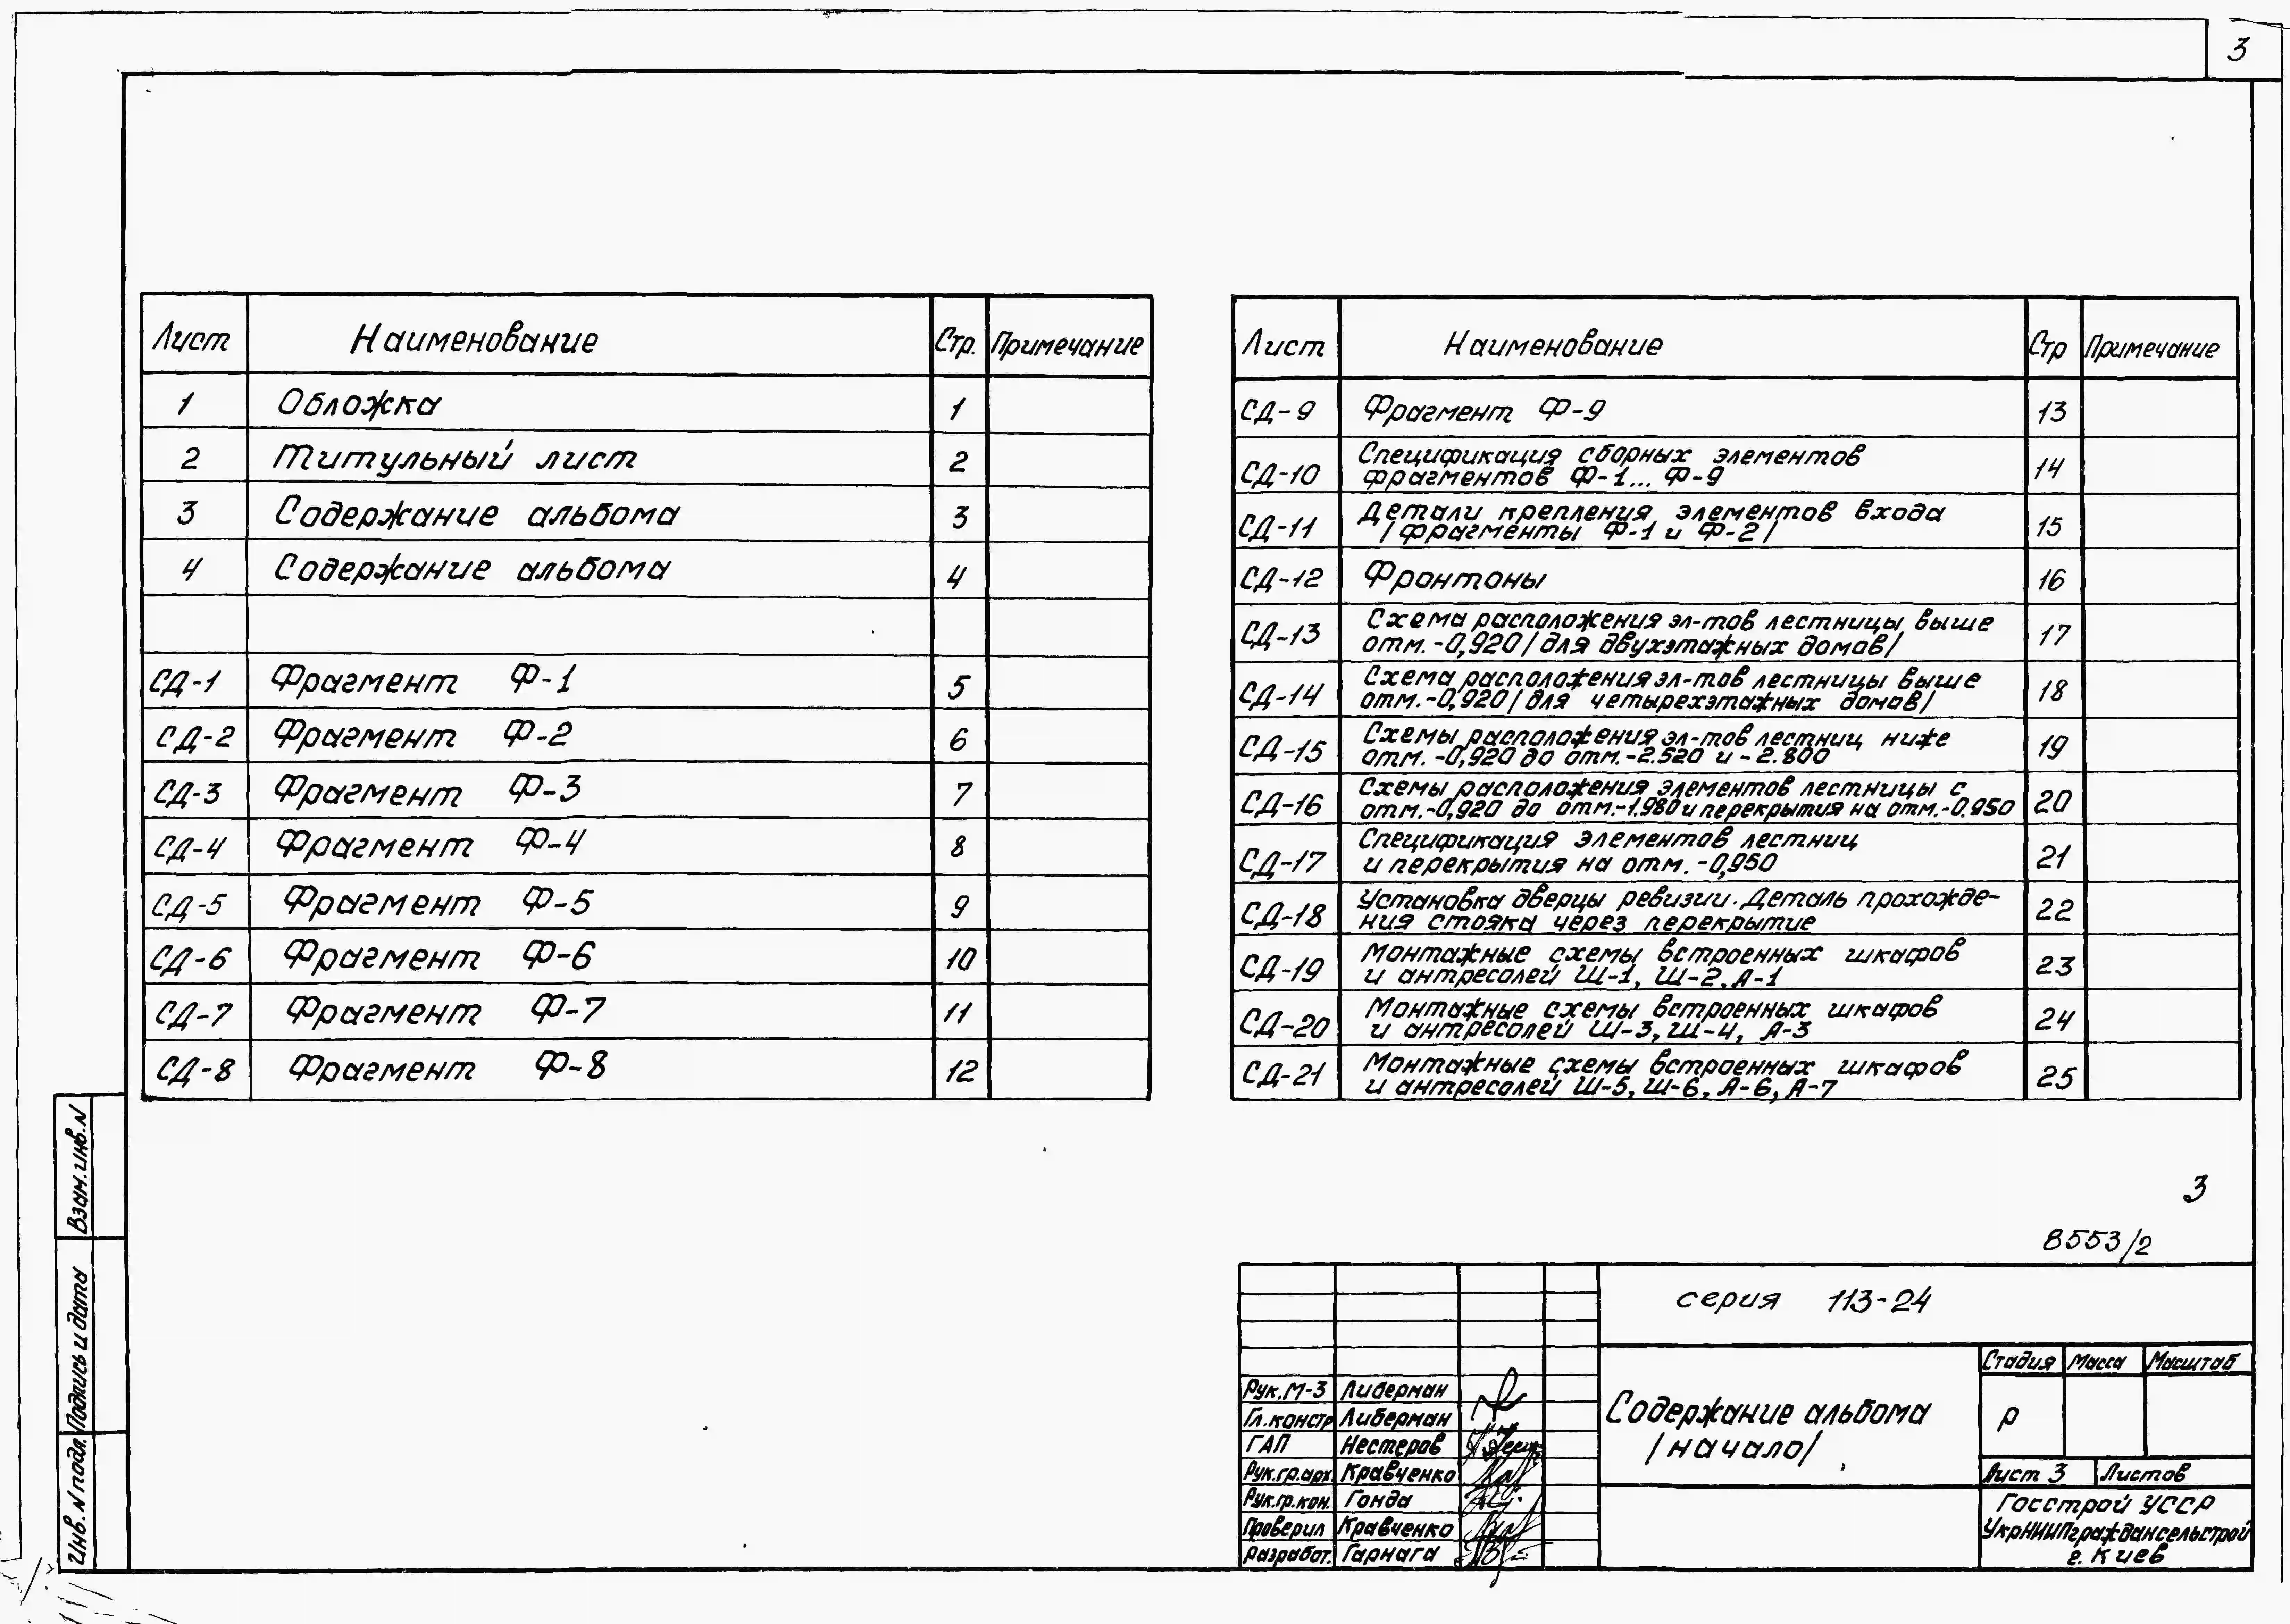 3
Лист Наименование Стр. Примечание
1 Обложка 1
2 Титульный лист 2
3 Содержание альбома 3
4 Содержание альбома 4
СД-1 Фрагмент Ф-1 5
СД-2 Фрагмент Ф-2 6
СД-3 Фрагмент Ф-3 7
СД-4 Фрагмент Ф-4 8
СД-5 Фрагмент Ф-5 9
СД-6 Фрагмент Ф-6 10
СД-7 Фрагмент Ф-7 11
СД-8 Фрагмент Ф-8 12
Лист Наименование Стр Примечание
СД-9 Фрагмент Ф-9 13
Спецификация сборных элементов
СД-10 фрагментов Ф-1... Ф-9 14
Детали крепления элементов входа
СД-11 /фрагменты Ф-1 и Ф-2/ 15
СД-12 Фронтоны 16
Схема расположения эл-тов лестницы выше
СД-13 отм. -0,920 /для двухэтажных домов/ 17
Схема расположения эл-тов лестницы выше
СД-14 отм.-0,920 /для четырехэтажных домов/ 18
Схемы расположения эл-тов лестниц ниже
СД-15 отм. -0,920 до отм.-2.520 и -2.800 19
Схемы расположения элементов лестницы с
СД-16 отм.-0,920 до отм.-1.980 и перекрытия на отм.-0.950 20
Спецификация элементов лестниц
СД-17 и перекрытия на отм. -0,950 21
Установка дверцы ревизии. Деталь прохожде-
СД-18 ния стояка через перекрытие 22
Монтажные схемы встроенных шкафов
СД-19 и антресолей Ш-1, Ш-2, А-1 23
Монтажные схемы встроенных шкафов
СД-20 и антресолей Ш-3, Ш-4, А-3 24
Монтажные схемы встроенных шкафов
СД-21 и антресолей Ш-5, Ш-6, А-6, А-7 25
3
8553/2
серия 113-24
Содержание альбома
/начало/
Стадия Масса Масштаб
Р
Лист 3 Листов
Госстрой УССР
УкрНИИПграждансельстрой
г. Киев
Рук.М-3 Либерман
Гл.констр Либерман
ГАП Нестеров
Рук.гр.арх. Кравченко
Рук.гр.кон. Гонда
Проверил Кравченко
Разработ. Гарнага
Взам.инв.N
Подпись и дата
Инв.N подл.